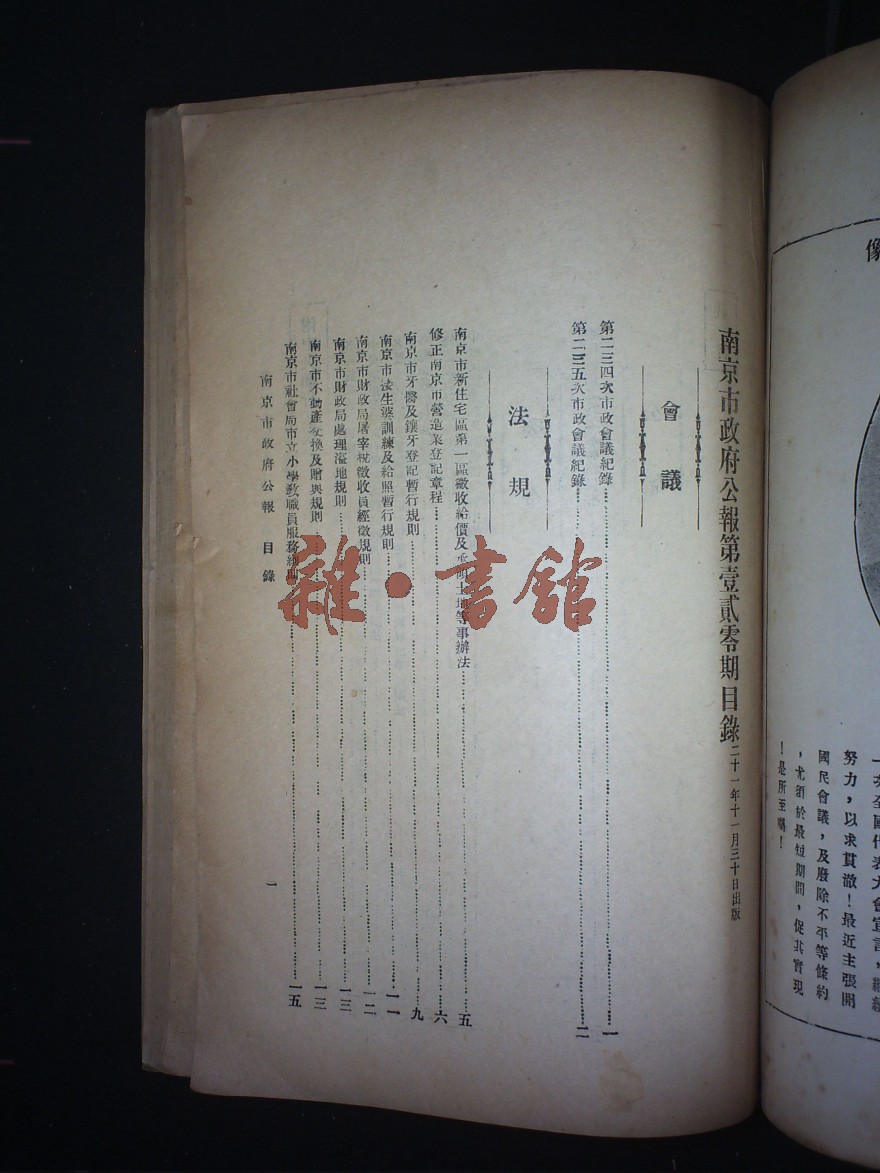 像
一次全國代表大會宣言，繼續
努力，以求貫澈！最近主張開
國民會議，及廢除不平等條約
，尤須於最短期間，促其實現
！是所至囑！
南京市政府公報第壹貳零期目錄 二十一年十一月三十日出版
會議
第二三四次市政會議紀錄……一
第二三五次市政會議紀錄……二
法規
南京市新住宅區第一區徵收給價及承領土地等事辦法……五
修正南京市營造業登記章程……六
南京市牙醫及鑲牙登記暫行規則……九
南京市接生婆訓練及給照暫行規則……一一
南京市財政局屠宰稅徵收員經徵規則……一二
南京市財政局處理溢地規則……一三
南京市不動產交換及贈與規則……一三
南京市社會局市立小學教職員服務細則……一五
南京市政府公報 目錄
一
雜·書館